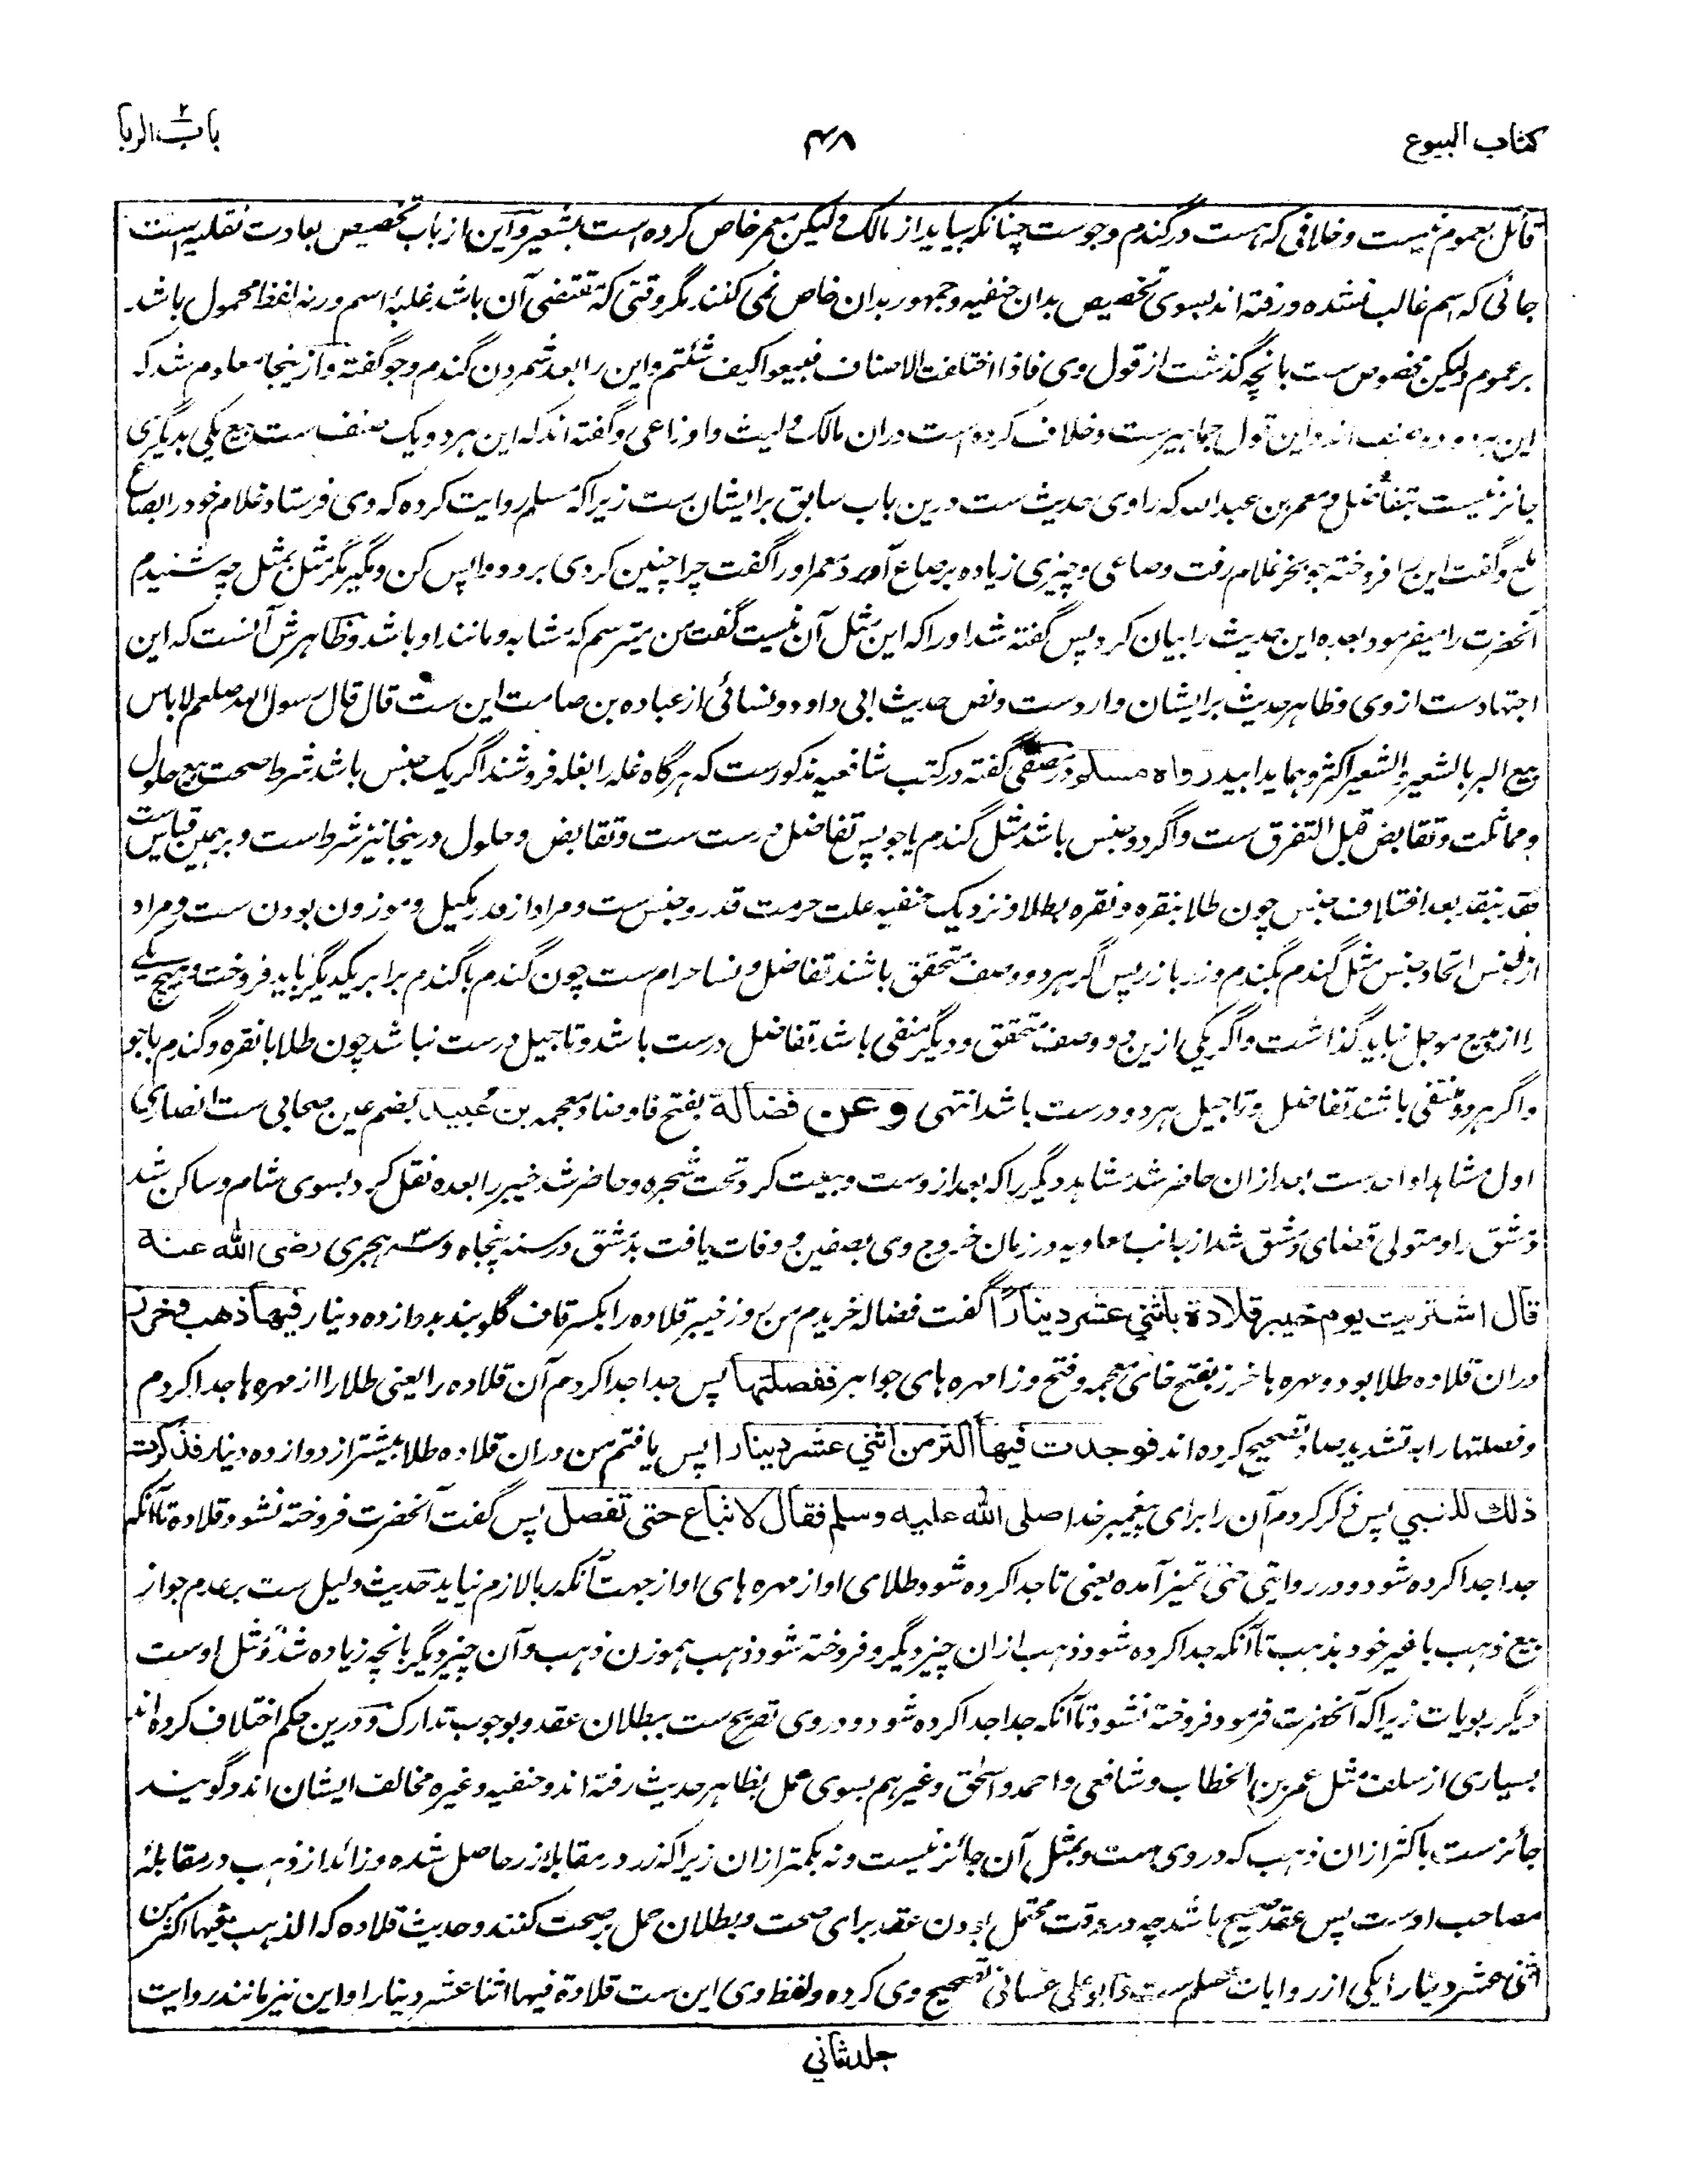 کتاب البیوع
۴۸
باب الربا
قائل بعموم نیست و خلافی که هست در گندم و جوست چنانکه بیاید از مالک و لیکن معمر خاص کرده است بشعیر و این از باب تخصیص بعادت نقلیه است
جائی که اسم غالب نشده و رفته اند بسوی تخصیص بدان حنفیه و جمهور بدان خاص نمی کنند مگر وقتی که مقتضی آن باشد غلبۀ اسم ورنه لفظ محمول باشد
بر عموم لیکن مخصوص ست بانچه گذشت از قول وی فاذا اختلفت الاصناف فبیعوا کیف شئتم و این را بعد شمردن گندم و جو گفته و ازینجا معلوم شد که
این هر دو دو صنف اند و این قول جماهیرست و خلاف کرده ست دران مالک و لیث و اوزاعی و گفته اند که این هر دو یک صنف ست بیع یکی بدیگری
جائز نیست بتفاضل و معمر بن عبدالله که راوی حدیث ست درین باب سابق بر ایشان ست زیرا که مسلم روایت کرده که وی فرستاد غلام خود را بصاع
و گفت این را فروخته جو بخر غلام رفت و صاعی و چیزی زیاده بر صاع آورد معمر او را گفت چرا چنین کردی برو و واپس کن و مگیر مگر مثل بمثل چه شنیدم
آنحضرت را میفرمود بعده این حدیث را بیان کرد پس گفته شد او را که این مثل آن نیست گفت من میترسم که مشابه و مانند او باشد و ظاهرش آنست که این
اجتهادست از وی و ظاهر حدیث بر ایشان واردست و نص حدیث ابی داود و نسائی از عباده بن صامت این ست قال قال رسول الله صلعم لاباس
بیع البر بالشعیر و الشعیر اکثر وهما یدا بید رواه مسلم و در مصفی گفته در کتب شافعیه مذکورست که هرگاه غله را بغله فروشند اگر یک جنس باشد شرط صحت بیع حلول
و مماثلت و تقابض قبل التفرق ست و اگر دو جنس باشد مثل گندم با جو پس تفاضل درست ست و تقابض و حلول درینجا نیز شرط است و برهمین قیاس ست
نقد بنقد بعد اختلاف جنس چون طلا بنقره و نقره بطلا و نزدیک حنفیه علت حرمت قدر و جنس ست و مراد از قدر مکیل و موزون بودن ست و مراد
از جنس اتحاد جنس مثل گندم بگندم و زر بازر پس اگر هر دو وصف متحقق باشند تفاضل و نسا حرام ست چون گندم با گندم برابر یکدیگر باید فروخت و هیچ یکے
را از هیچ موجل نباید گذاشت و اگر یکی ازین دو وصف متحقق و دیگر منفی باشد تفاضل درست باشد و تاجیل درست نباشد چون طلا با نقره و گندم با جو
و اگر هر دو منتفی باشند تفاضل و تاجیل هر دو درست باشد انتهی وعن فضالة بفتح فا و ضاد معجمه بن عبید بضم عین صحابی ست انصاری
اول مشاهد او احدست بعد ازان حاضر شد مشاهد دیگر را که بعد از وست و بیعت کرد تحت شجره و حاضر شد خیبر را بعده نقل کرد بسوی شام و ساکن شد
دمشق را و متولی قضای دمشق شد از جانب معاویه در زمان خروج وی بصفین و وفات یافت بدمشق در سنه پنجاه و سه هجری رضی الله عنه
قال اشتریت یوم خیبر قلادة باثنی عشر دینارًا گفت فضاله خریدم من روز خیبر قلاده را بکسر قاف گلوبند بدوازده دینار فیها ذهب وخرز
دران قلاده طلا بود و مهره ها خرز بفتح خای معجمه و فتح و زا مهره های جواهر ففصلتها پس جدا جدا کردم آن قلاده را یعنی طلا را از مهره ها جدا کردم
و فصلتها را به تشدید صاد تصحیح کرده اند فوجدت فیها اکثر من اثنی عشر دینارا پس یافتم من دران قلاده طلا بیشتر از دوازده دینار فذکرت
ذلك للنبي پس ذکر کردم آن را برای پیغمبر خدا صلی الله علیه وسلم فقال لا تباع حتی تفصل پس گفت آنحضرت فروخته نشود قلاده تا آنکه
جدا جدا کرده شود و در روایتی حتی تمیز آمده یعنی تا جدا کرده شود طلای او از مهره های او از جهت آنکه ربا لازم نیاید حدیث دلیل ست بر عدم جواز
بیع ذهب با غیر خود بذهب تا آنکه جدا کرده شود ذهب ازان چیز دیگر و فروخته شود ذهب هموزن ذهب و آن چیز دیگر بانچه زیاده شد و مثل اوست
دیگر ربویات زیرا که آنحضرت فرمود فروخته نشود تا آنکه جدا جدا کرده شود و دروی تصریح ست ببطلان عقد و بوجوب تدارک و درین حکم اختلاف کرده اند
بسیاری از سلف مثل عمر بن الخطاب و شافعی و احمد و اسحٰق و غیرهم بسوی عمل بظاهر حدیث رفته اند و حنفیه و غیره مخالف ایشان اند و گویند
جائزست باکثر ازان ذهب که دروی ست و بمثل آن جائز نیست و نه بکمتر ازان زیرا که زر در مقابلۀ زر حاصل شده و زائد از ذهب در مقابلۀ
مصاحب اوست پس عقد صحیح باشد چه در وقت محتمل بودن عقد برای صحت و بطلان حمل بر صحت کنند و حدیث قلاده که الذهب فیها اکثر من
اثنی عشر دینارا یکی از روایات مسلم ست و ابو علی غسانی تصحیح وی کرده و لفظ وی این ست قلادة فیها اثنا عشر دینارا و این نیز مانند روایت
جلد ثانی